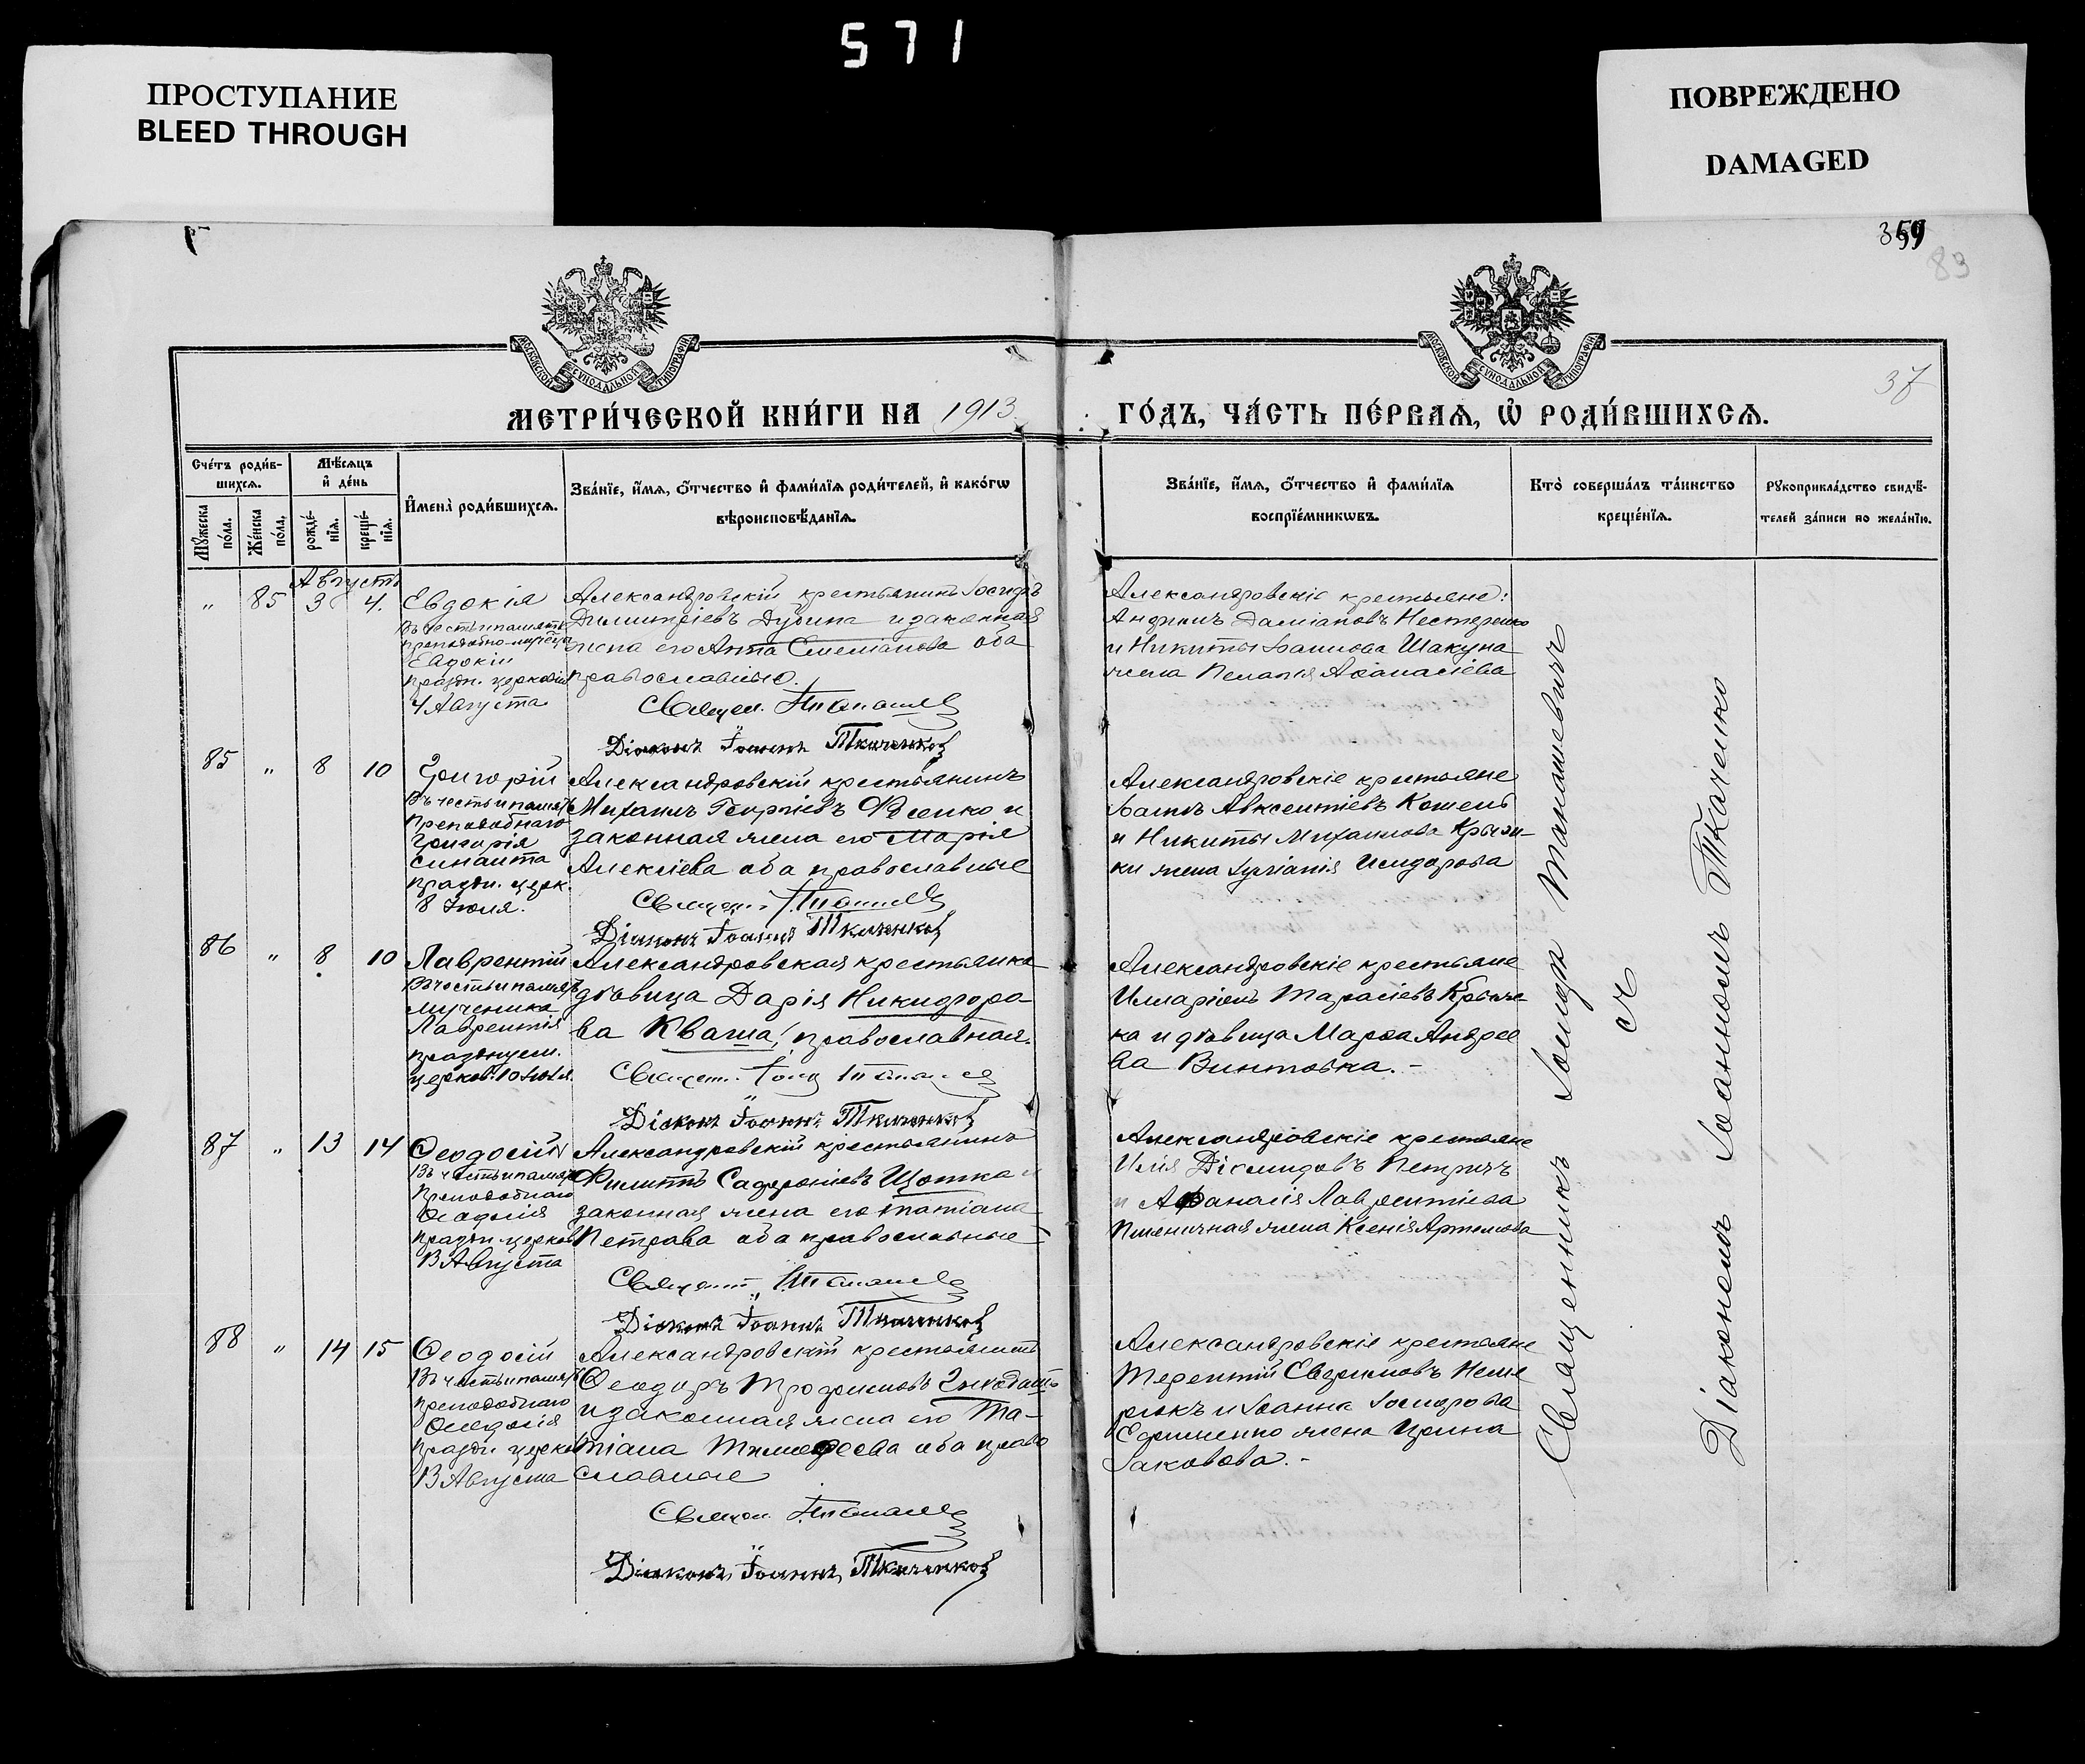 571
ПРОСТУПАНИЕ
BLEED THROUGH
ПОВРЕЖДЕНО
DAMAGED
359
83
37
МОСКОВСКОЙ СѴНОДАЛЬНОЙ ТИПОГРАФІИ
МОСКОВСКОЙ СѴНОДАЛЬНОЙ ТИПОГРАФІИ
МЕТРИ́ЧЕСКОЙ КНИ́ГИ НА 1913
ГО́ДЪ, ЧА́СТЬ ПЕ́РВАѦ, Ѡ҆ РОДИ́ВШИХСѦ.
Сче́тъ роди́в-
шихсѧ.
Мꙋ́жеска по́ла.
Же́нска по́ла.
Мѣ́сѧцъ
и҆ де́нь
рожде́-
нїѧ.
креще́-
нїѧ.
И҆мена̀ роди́вшихсѧ.
Зва́нїе, и҆́мѧ, ѻ҆́тчество и҆ фами́лїѧ роди́телей, и҆ како́гѡ
вѣроисповѣ́данїѧ.
Зва́нїе, и҆́мѧ, ѻ҆́тчество и҆ фами́лїѧ
воспрїе́мникѡвъ.
Кто̀ соверша́лъ та́инство
креще́нїѧ.
Рꙋкоприкла́дство свидѣ́-
телей за́писи по жела́нїю.
Августъ
" 85 3 4.
Евдокія
Въ честь и память
преподобно-мучениц
Евдокіи
праздн. церковію
4 Августа
Александровскій крестьянинъ Іосифъ
Димитріевъ Дубина и законная
жена его Анна Симеонова оба
православные.
Священ.
Діаконъ Іоаннъ Ткаченко
Александровскіе крестьяне:
Даміановъ Нестеренко
и Никиты Іоаннова Шакуна
жена Пелагія Аѳанасіева
85 " 8 10
Григорій
Въ честь и память
преподобнаго
Григорія
Синаита
праздн. церк.
8 Іюля.
Александровскій крестьянинъ
Михаилъ Георгіевъ Фесенко и
законная жена его Марія
Алексіева оба православные
Священ.
Діаконъ Іоаннъ Ткаченко
Александровскіе крестьяне
Іоаннъ Авксентіевъ Кошель
и Никиты Михаилова Крыжи-
ки жена Іуліанія Исидорова
86 " 8 10
Лаврентій
Въ честь и память
мученика
Лаврентія
празднуем.
церков. 10 Іюля.
Александровская крестьянка
дѣвица Дарія Никифоро-
ва Кваша, православная.
Священ.
Діаконъ Іоаннъ Ткаченко
Александровскіе крестьяне
Илларіонъ Тарасіевъ Крыжи-
ка и дѣвица Марѳа Андрее
ва Винтовка.-
87 " 13 14
Ѳеодосій
Въ честь и память
Преподобнаго
Ѳеодосія
праздн. церков
13 Августа
Александровскій крестьянинъ
Филиппъ Софроніевъ Щотка и
законная жена его Татіана
Петрова оба православные
Священ.
Діаконъ Іоаннъ Ткаченко
Александровскіе крестьяне
Илія Діомидовъ Петричъ
и Афанасія Лаврентіева
Пшеничная жена Ксенія Артемова
88 " 14 15
Ѳеодосій
Въ честь и память
преподобнаго
Ѳеодосія
праздн. церков
13 Августа
Александровскій крестьянинъ
Ѳеодоръ Трофимовъ
и законная жена его Та-
тіана Тимофеева оба право
славные
Священ.
Діаконъ Іоаннъ Ткаченко
Александровскіе крестьяне
Терентій Евфимовъ
и Іоанна Іосифова
Ефименко жена Ирина
Іаковова.-
Священникъ Іосифъ Танашевичъ
съ
Діакономъ Іоанномъ Ткаченко